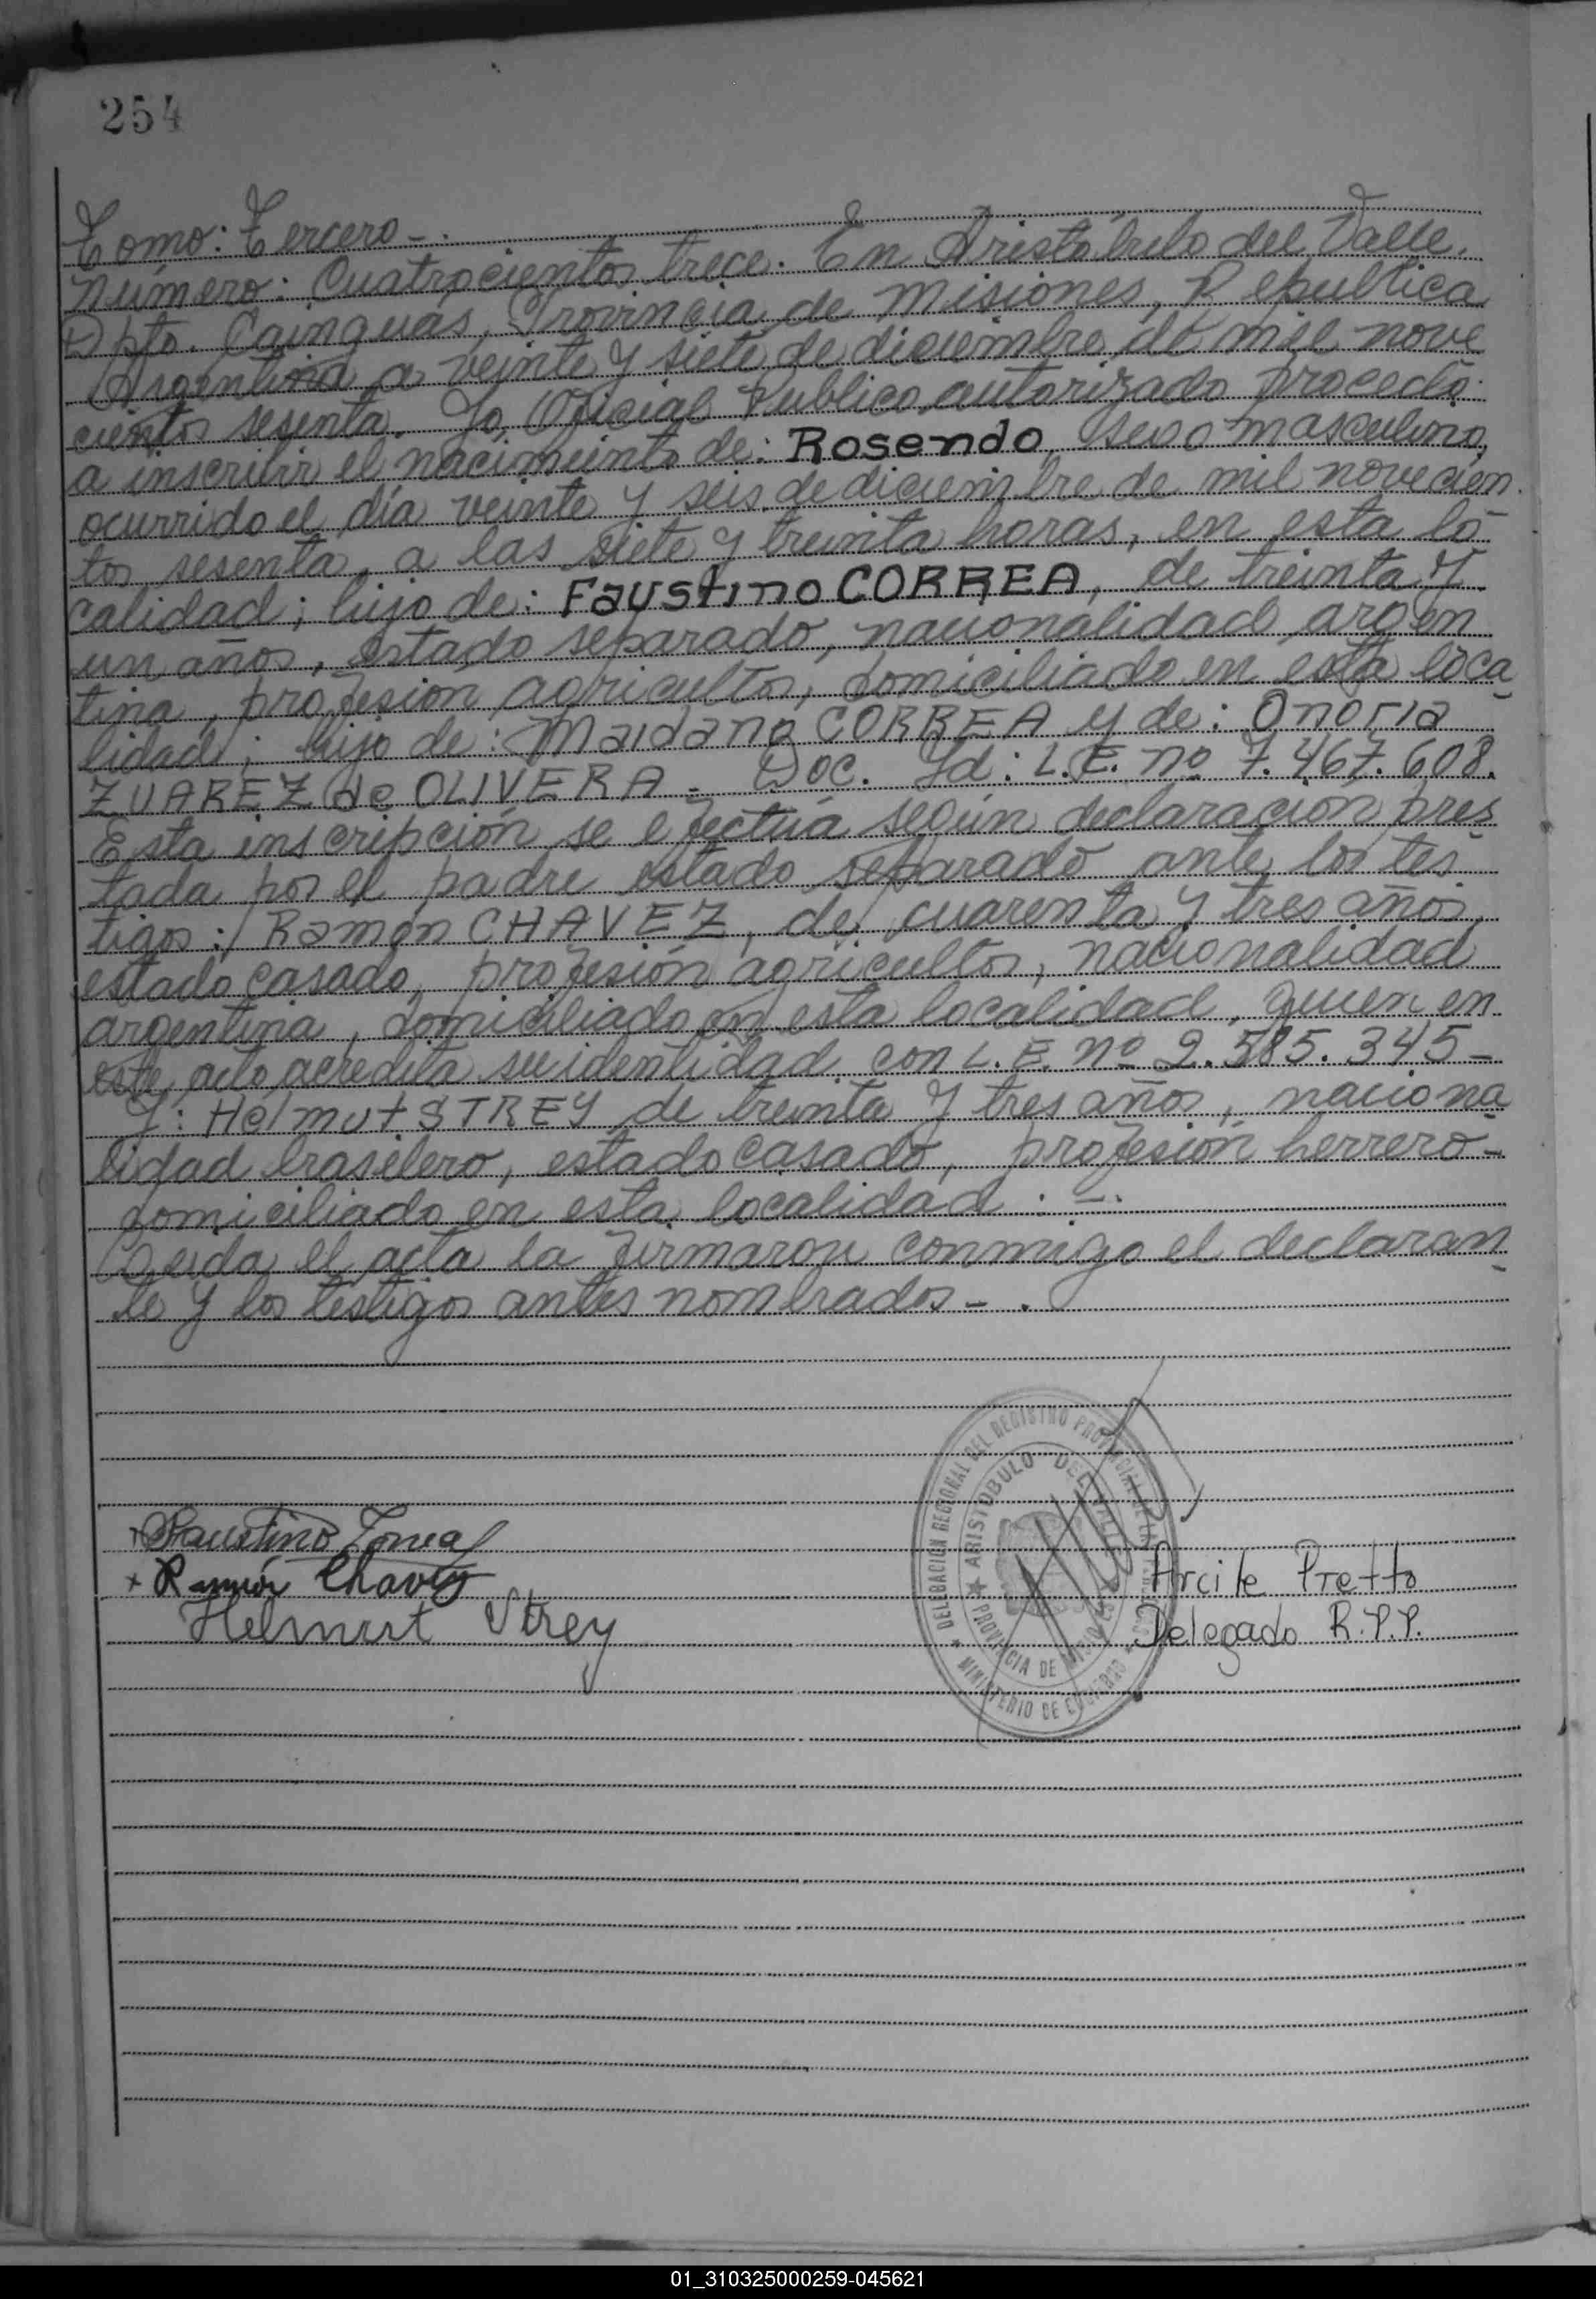 254
Tomo: Tercero -.
Número: Cuatrocientos trece. En Aristóbulo del Valle,
Dpto. Cainguás, Provincia de Misiones, República
Argentina a veinte y siete de diciembre de mil nove
cientos sesenta. Yo, Oficial Público autorizado procedo
a inscribir el nacimiento de: Rosendo, sexo masculino,
ocurrido el día veinte y seis de diciembre de mil novecien
tos sesenta, a las siete y treinta horas, en esta lo
calidad; hijo de: Faustino CORREA, de treinta y
un años, estado separado, nacionalidad argen
tina, profesión agricultor, domiciliado en esta loca
lidad; hijo de: Maidana CORREA y de: Onoria
ZUAREZ de OLIVERA - Doc. Id: L.E. nº 7.467.608.
Esta inscripción se efectúa según declaración pres
tada por el padre estado separado ante los tes
tigos: Ramón CHAVEZ, de cuarenta y tres años,
estado casado, profesión agricultor, nacionalidad
argentina, domiciliado en esta localidad, quien en
este acto acredita su identidad con L.E. nº 2.585.345-
Y: Helmut STREY de treinta y tres años, naciona
lidad brasilero, estado casado, profesión herrero-
domiciliado en esta localidad.-.
Leida el acta la firmaron conmigo el declaran
te y los testigos antes nombrados-.
Faustino Correa
x Ramón Chavez
Helmut Strey
DELEGACIÓN REGIONAL DEL REGISTRO PROVINCIAL DE LAS PERSONAS
ARISTOBULO DEL VALLE
PROVINCIA DE MISIONES
MINISTERIO DE GOBIERNO
Arcile Pretto
Delegado R.P.P.
01_310325000259-045621